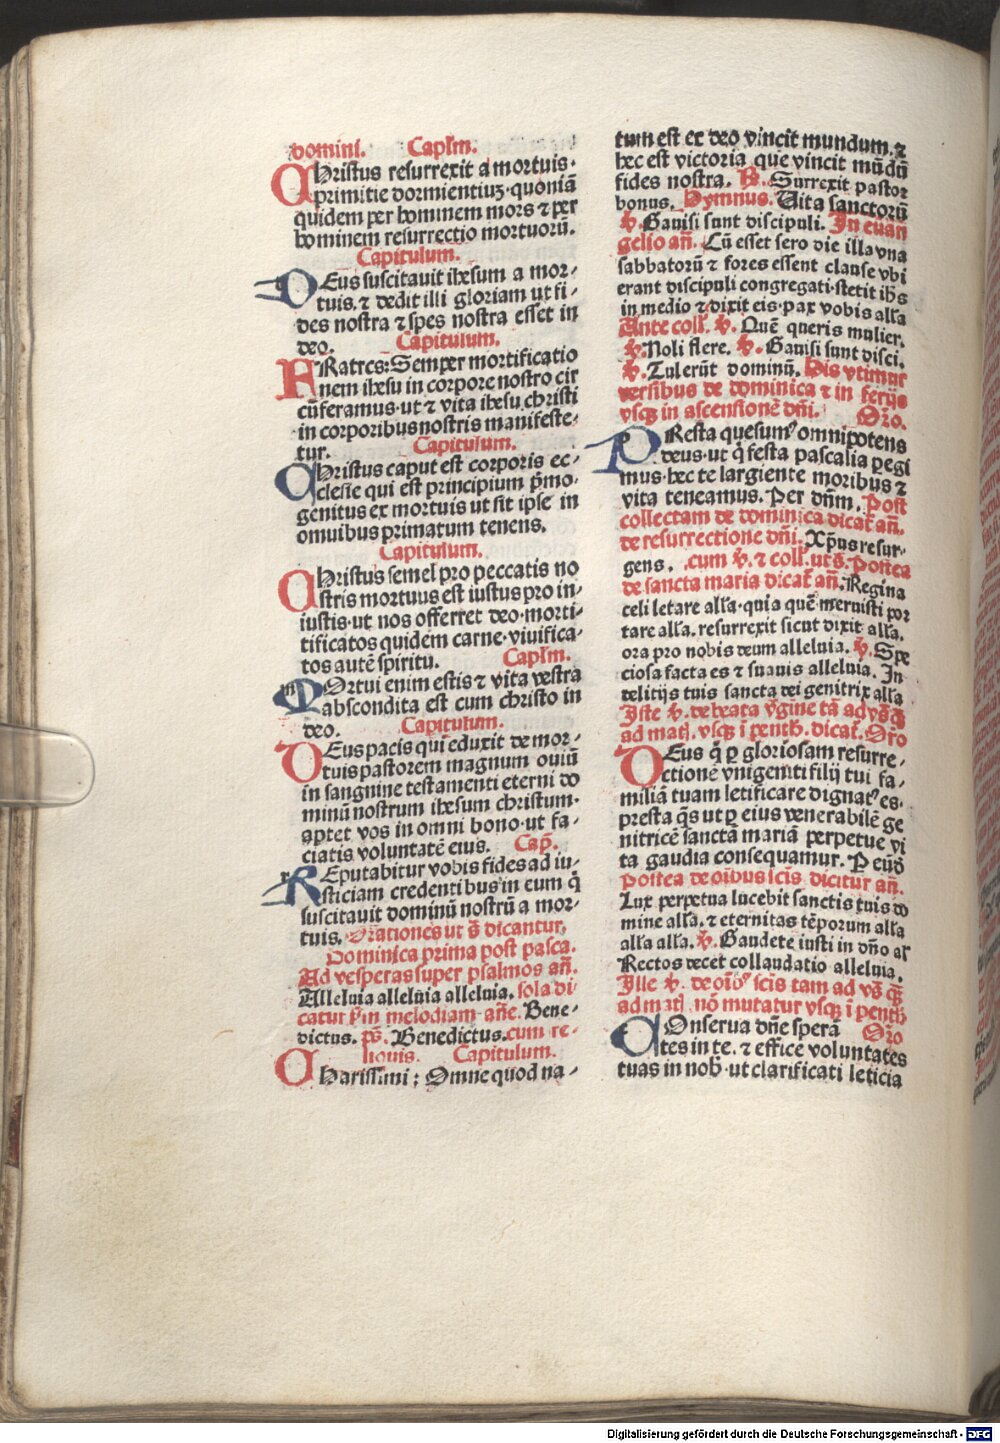 domini. Capl'm.
CHristus resurrexit a mortuis·
primitie dormientiuꝫ·quoniā
quidem per hominem mors ⁊ per
hominem resurrectio mortuorū.
Capitulum.
DEus suscitauit ihesum a mor-
tuis. ⁊ dedit illi gloriam ut fi-
des nostra ⁊ spes nostra esset in
deo. Capitulum.
FRatres: Semper mortificatio
nem ihesu in corpore nostro cir
cūferamus·ut ⁊ vita ihesu christi
in corporibus nostris manifeste-
tur. Capitulum.
CHristus caput est corporis ec-
clesie qui est principium p̄mo-
genitus ex mortuis ut sit ipse in
omnibus primatum tenens.
Capitulum.
CHristus semel pro peccatis no
stris mortuus est iustus pro in-
iustis·ut nos offerret deo·morti-
tificatos quidem carne·viuifica-
tos autē spiritu. Capl'm.
MOrtui enim estis ⁊ vita vestra
abscondita est cum christo in
deo. Capitulum.
DEus pacis qui eduxit de mor-
tuis pastorem magnum ouiū
in sanguine testamenti eterni do
minū nostrum ihesum christum·
aptet vos in omni bono·ut fa-
ciatis voluntatē eius. Cap̄.
REputabitur vobis fides ad iu-
sticiam credentibus in eum q̄
suscitauit dominū nostrū a mor-
tuis. Orationes ut s̄ dicantur.
Dominica prima post pasca.
Ad vesperas super psalmos añ.
Alleluia alleluia alleluia. sola di-
catur p̄m melodiam añe. Bene-
dictus. ps̄. Benedictus. cum re-
liquis. Capitulum.
CHarissimi: Omne quod na-
tum est ex deo vincit mundum. ⁊
hec est victoria que vincit mūdū
fides nostra. ℟. Surrexit pastor
bonus. Hymnus. Uita sanctorū
℣. Gauisi sunt discipuli. In euan
gelio añ. Cū esset sero die illa vna
sabbatorū ⁊ fores essent clause vbi
erant discipuli congregati·stetit ihs
in medio ⁊ dixit eis·pax vobis all'a
Ante coll'. ℣. Quē queris mulier.
℣. Noli flere. ℣. Gauisi sunt disci.
℣. Tulerūt dominū. His vtimur
versibus de dominica ⁊ in ferijs
vsqꝫ in ascensionē dñi. Oro.
PResta quesumꝰ omnipotens
deus·ut q̄ festa pascalia pegi
mus·hec te largiente moribus ⁊
vita teneamus. Per dñm. Post
collectam de dominica dicat̄ añ.
de resurrectione dñi. Xp̄us resur-
gens. cum ℣. ⁊ coll'. ut s̄. Postea
de sancta maria dicat̄ añ. Regina
celi letare all'a·quia quē meruisti por
tare all'a. resurrexit sicut dixit all'a.
ora pro nobis deum alleluia. ℣. Spe
ciosa facta es ⁊ suauis alleluia. In
delitijs tuis sancta dei genitrix all'a
Iste ℣. de beata v̄gine tā ad vs̄ q̄ꝫ
ad mat̄. vsqꝫ ī penth. dicat̄. Oro
DEus q̄ p gloriosam resurre-
ctionē vnigeniti filij tui fa-
miliā tuam letificare dignatꝰ es·
presta q̄s ut p eius venerabilē ge
nitricē sanctā mariā perpetue vi
ta gaudia consequamur. P eūd
Postea de oībus scīs dicitur añ.
Lux perpetua lucebit sanctis tuis do
mine all'a. ⁊ eternitas tēporum all'a
all'a all'a. ℣. Gaudete iusti in dño al'
Rectos decet collaudatio alleluia.
Ille ℣. de oībꝰ scīs tam ad vs̄ q̄ꝫ
ad mat̄. nō mutatur vsqꝫ ī penth
COnserua dñe spera Oro
tes in te. ⁊ effice voluntates
tuas in nob·ut clarificati leticia
Digitalisierung gefördert durch die Deutsche Forschungsgemeinschaft - DFG